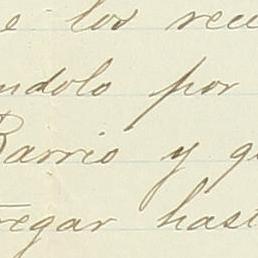 e los recu
ndolo por
Barrio y qu
regar hast